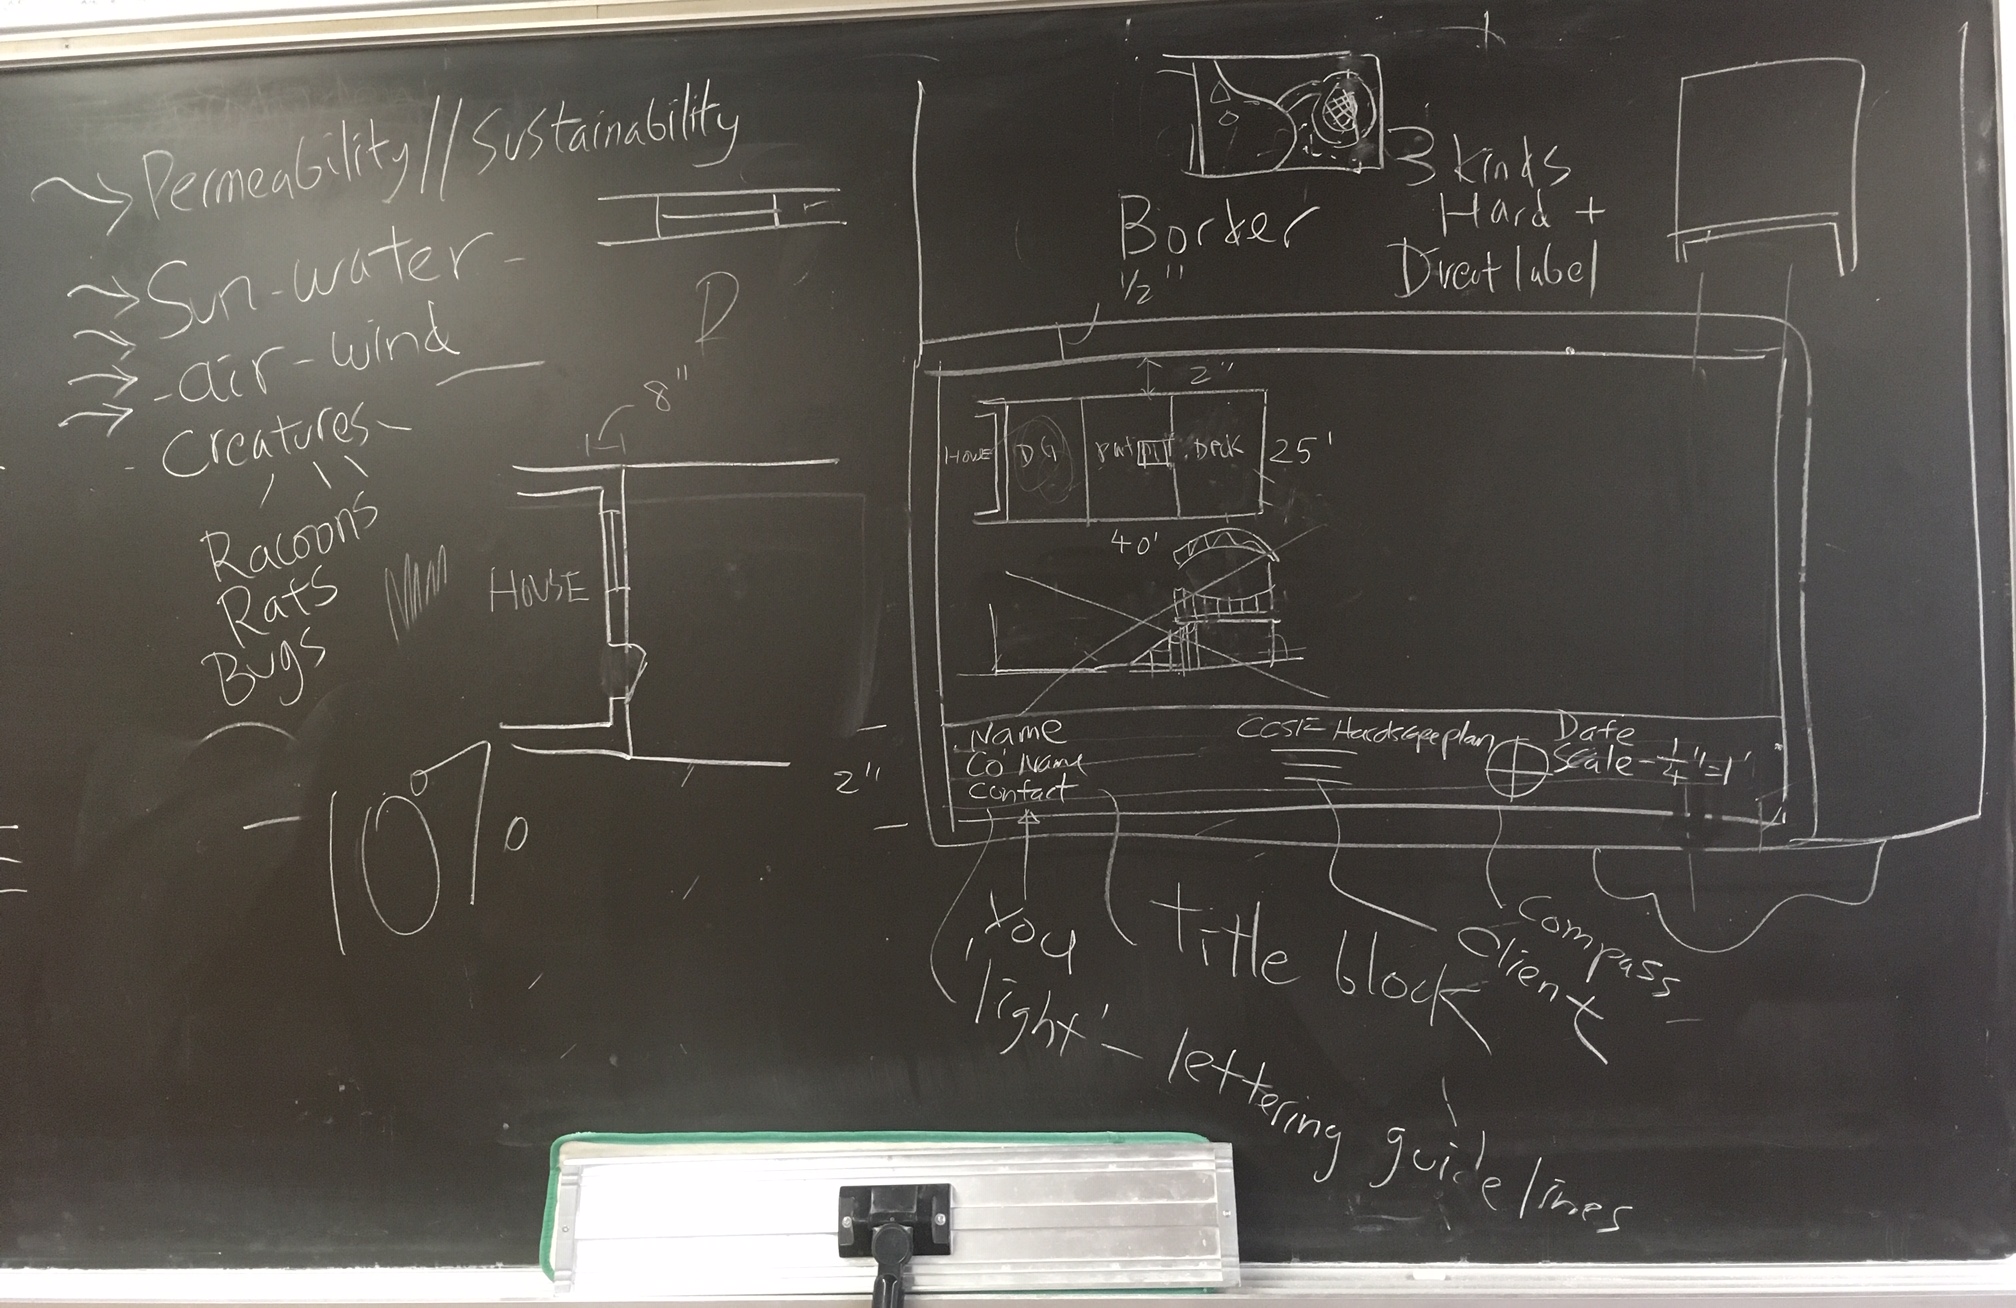 Permeability//Sustainability
Sun-water-
-air-wind
-Creatures-
Racoons
Rats
Bugs
10%
8"
HOUSE
2"
3 kinds
Hard +
Direct label
Border
1/2"
2"
House
DG
Deck
25'
40'
Name
Co' Name
Contact
CCSF- Hardscape plan
Date
Scale - 1/4" = 1'
You
Title block
Client
Compass
light - lettering guide lines